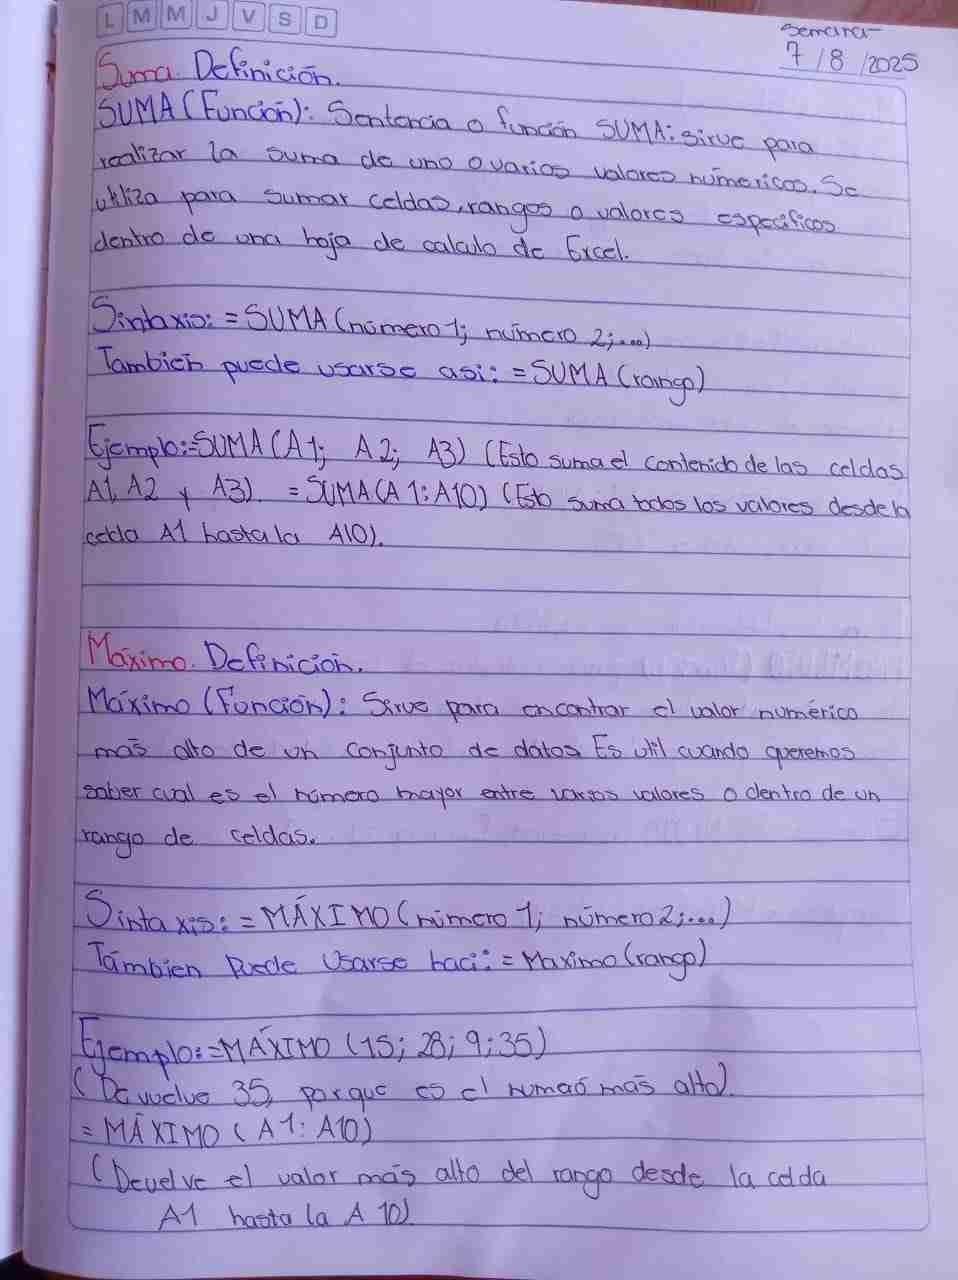 L M M J V S D
semana
7 / 8 / 2025
Suma. Definición.
SUMA (Función): Sentencia o función SUMA: sirve para
realizar la suma de uno o varios valores númericos. Se
utiliza para sumar celdas, rangos o valores especificos
dentro de una hoja de calculo de Excel.
Sintaxis: =SUMA (número 1; número 2;...)
Tambien puede usarse asi: =SUMA (rango)
Ejemplo:=SUMA (A1; A2; A3) (Esto suma el contenido de las celdas
A1, A2 y A3). =SUMA (A1:A10) (Esto suma todos los valores desde la
celda A1 hasta la A10).
Máximo. Definicion.
Máximo (Función): Sirve para encontrar el valor numérico
más alto de un conjunto de datos. Es util cuando queremos
saber cual es el número mayor entre varios valores o dentro de un
rango de celdas.
Sintaxis: =MÁXIMO (número 1; número 2;...)
Támbien puede usarse haci: =Maximo (rango)
Ejemplo:=MÁXIMO (15; 28; 9; 35)
(Devuelve 35, porque es el numero más alto).
=MÁXIMO (A1: A10)
(Devuelve el valor más alto del rango desde la celda
A1 hasta la A 10).